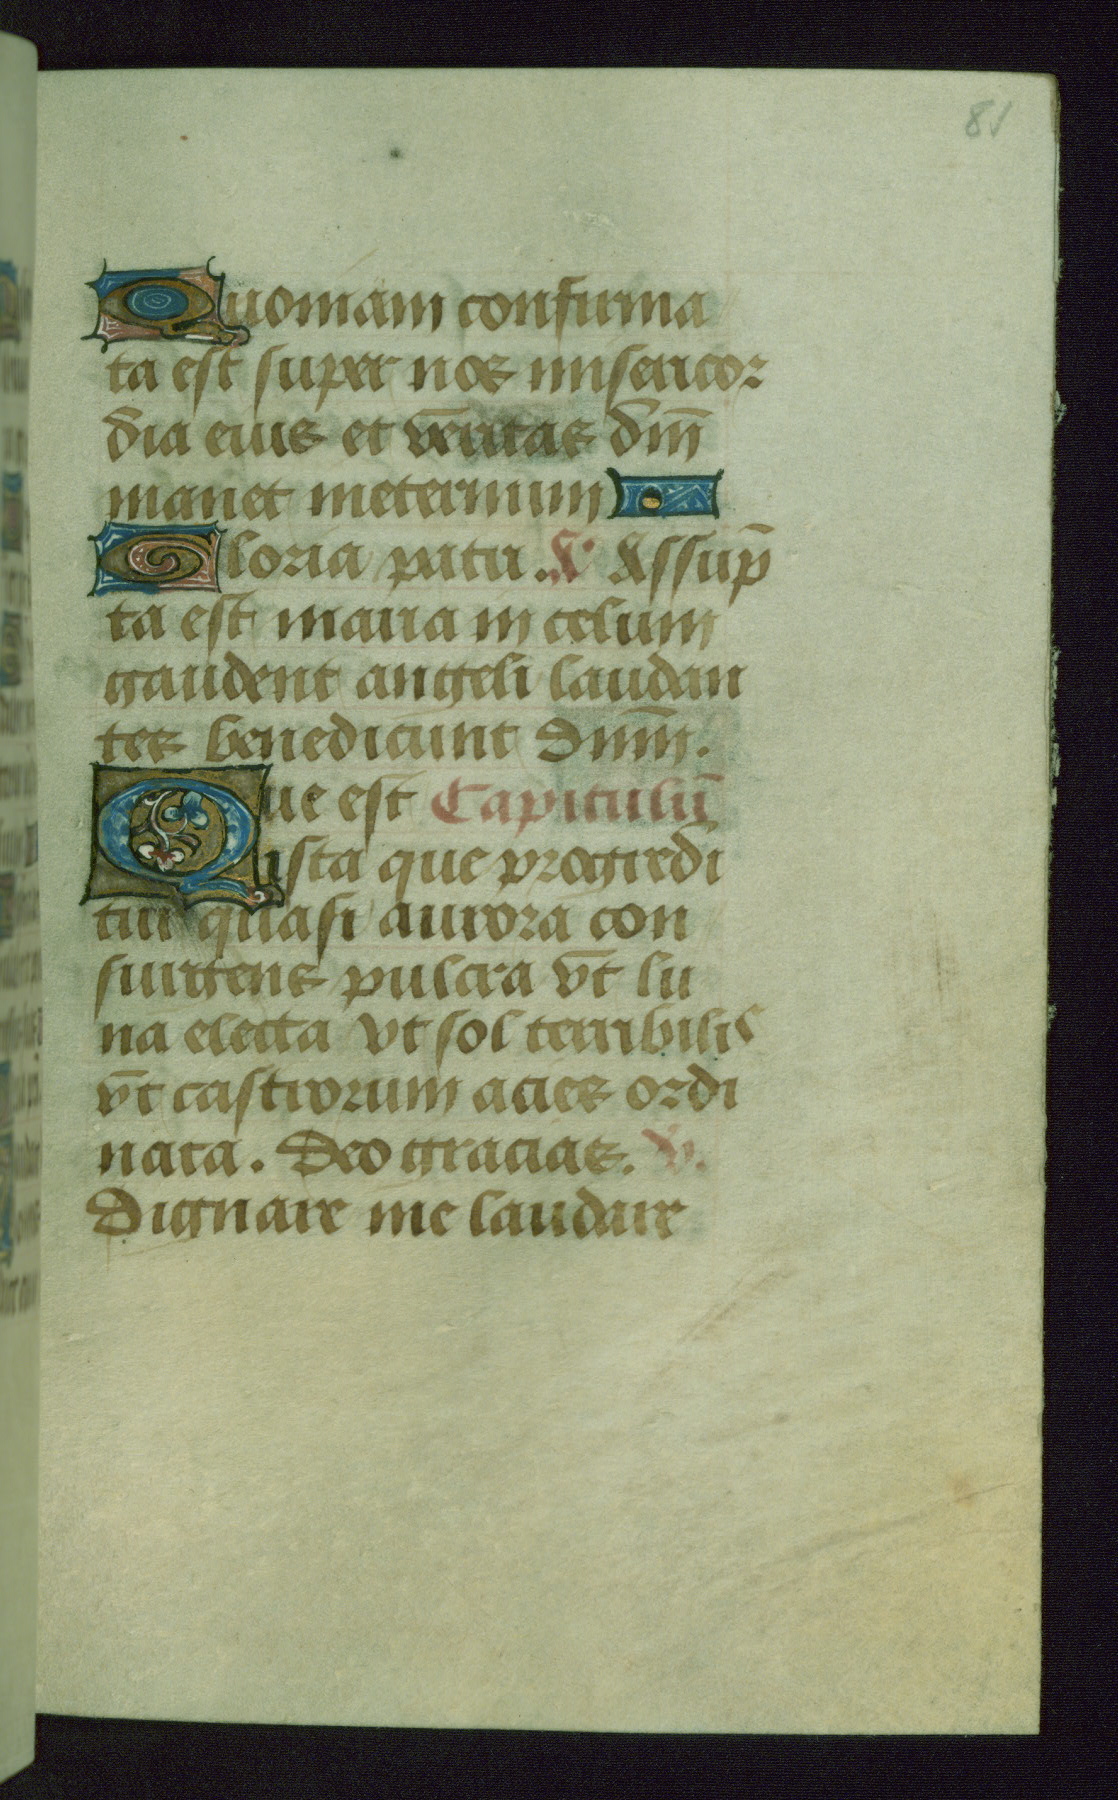 81
Quoniam confirma
ta est super nos misericor
dia eius et vēritas dm̄
manet ineternum
Gloria patri. A Assup̄
ta est maria in celum
gaudent angeli laudan
tes benedicunt dnm̄.
Que est Capitulū
ista que progredi
tur quasi aurora con
surgens pulcra vt̄ lu
na electa vt sol terribilis
vt̄ castrorum acies ordi
nata. Deo gracias. V.
Dignare me laudare